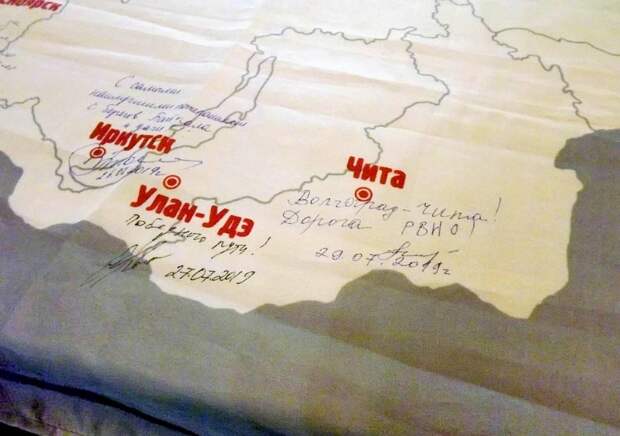 С самыми
наилучшими пожеланиями
с берегов Байкала
Иркутск
Чита
Улан-Удэ
Волгоград-Чита!
Дорога РВИО!
29.07.2019г
Победного пути!
27.07.2019